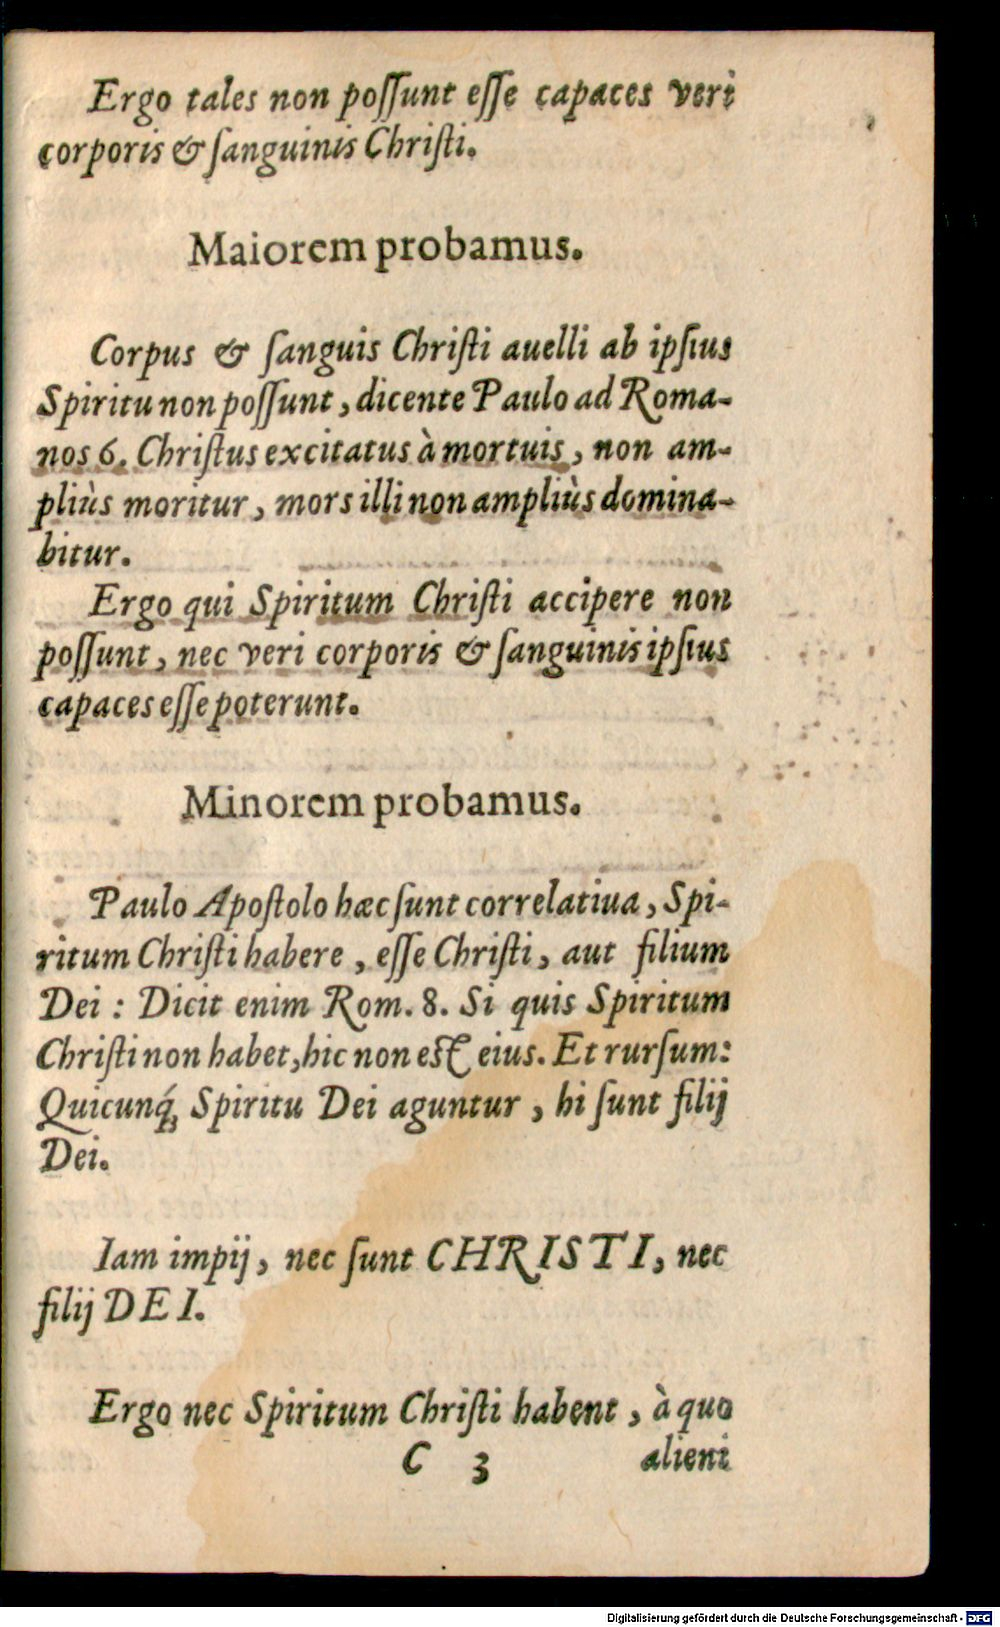 Ergo tales non poſſunt eſſe capaces veri
corporis & ſanguinis Chriſti.
Maiorem probamus.
Corpus & ſanguis Chriſti auelli ab ipſius
Spiritu non poſſunt, dicente Paulo ad Roma-
nos 6. Chriſtus excitatus à mortuis, non am-
pliùs moritur, mors illi non ampliùs domina-
bitur.
Ergo qui Spiritum Chriſti accipere non
poſſunt, nec veri corporis & ſanguinis ipſius
capaces eſſe poterunt.
Minorem probamus.
Paulo Apoſtolo hæc ſunt correlatiua, Spi-
ritum Chriſti habere, eſſe Chriſti, aut filium
Dei: Dicit enim Rom. 8. Si quis Spiritum
Chriſti non habet, hic non eſt eius. Et rurſum:
Quicunq́; Spiritu Dei aguntur, hi ſunt filij
Dei.
Iam impij, nec ſunt CHRISTI, nec
filij DEI.
Ergo nec Spiritum Chriſti habent, à quo
C 3 alieni
Digitalisierung gefördert durch die Deutsche Forschungsgemeinschaft - DFG